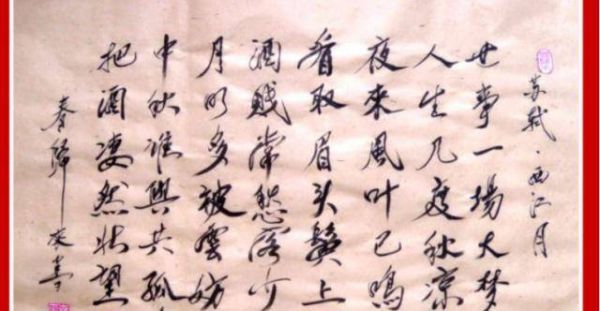 苏轼·西江月
世事一場大梦
人生几度秋凉
夜来風叶已鳴
看取眉头鬓上
酒賤常愁客少
月明多被雲妨
中秋谁與共孤
把酒凄然北望
春歸